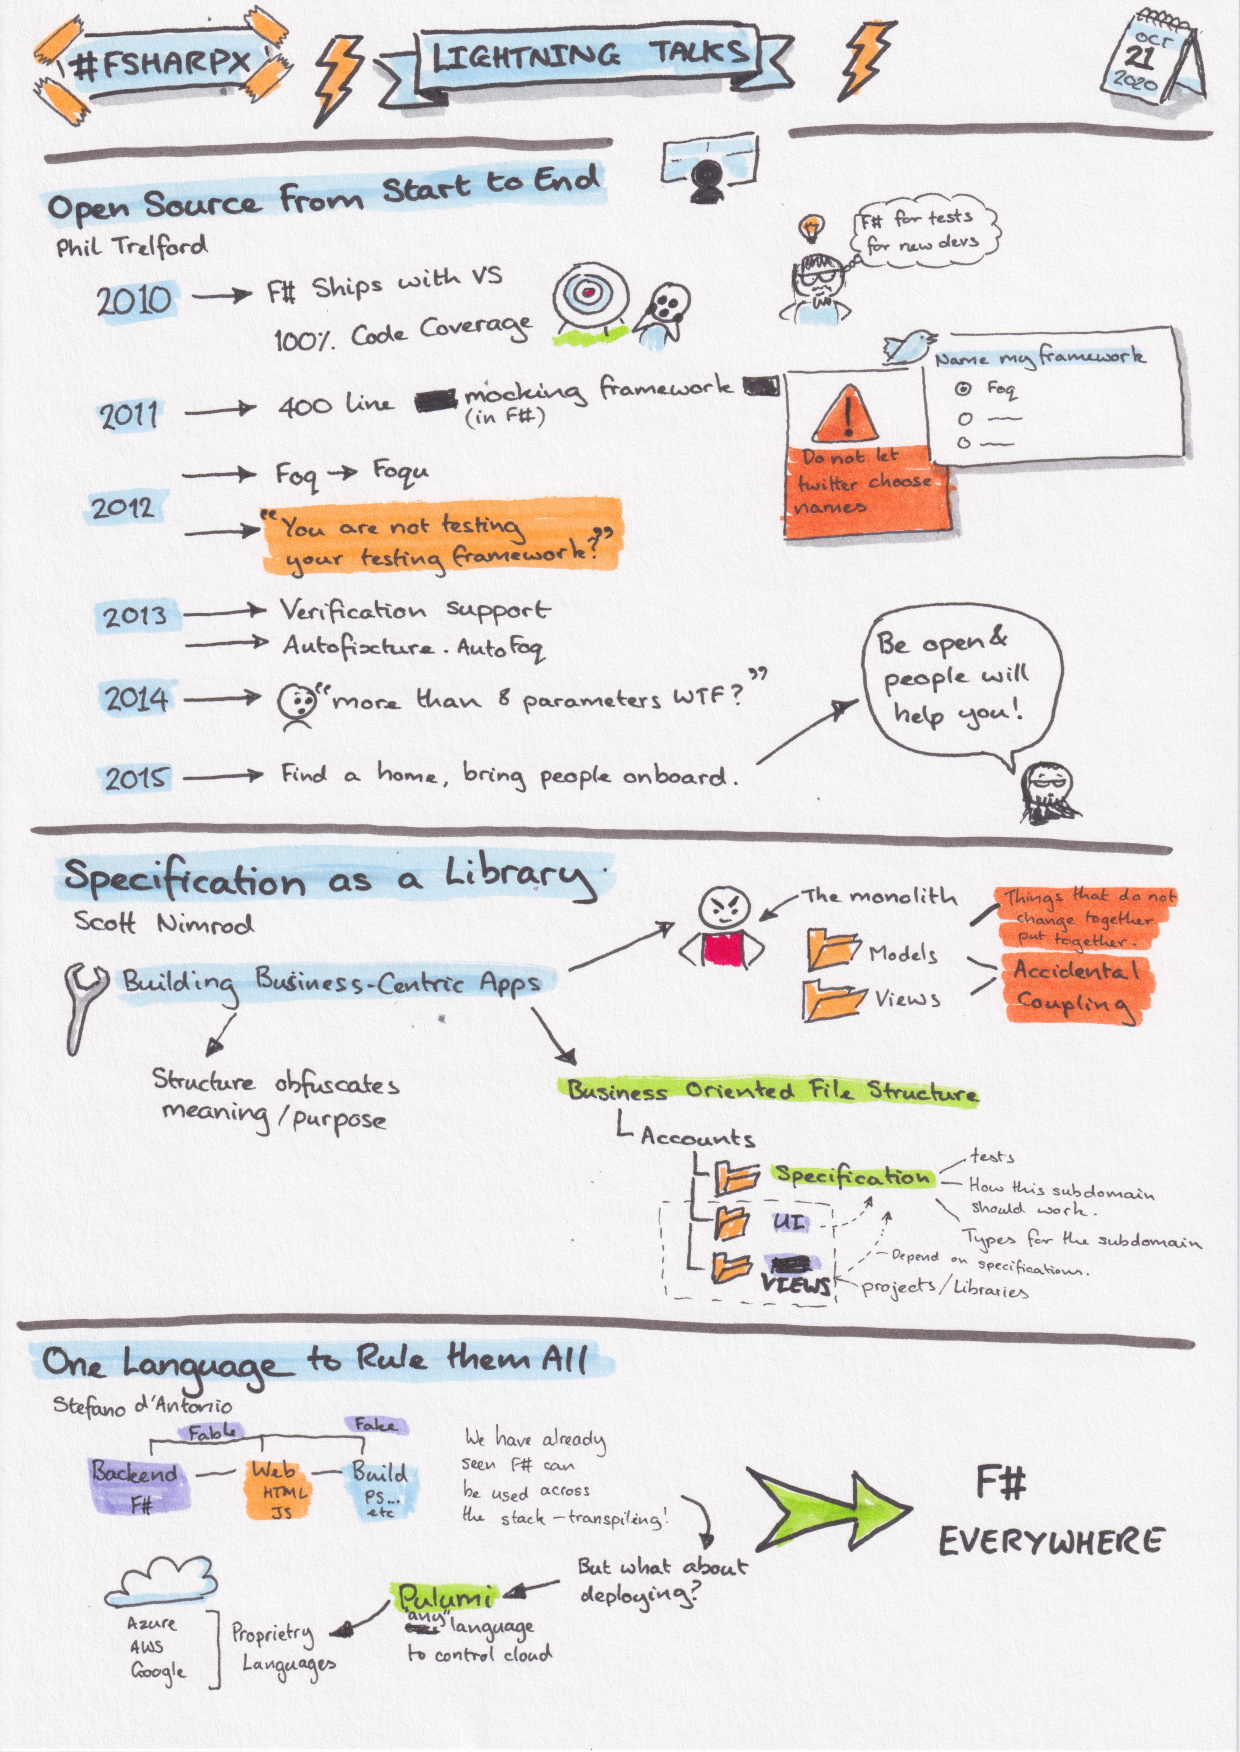 #FSHARPX
LIGHTNING TALKS
OCT
21
2020
Open Source From Start to End
Phil Trelford
2010 → F# Ships with VS
100% Code Coverage
F# for tests
for new devs
Name my framework
Foq
Do not let
twitter choose
names
2011 → 400 line mocking framework
(in F#)
2012
→ Foq → Foqu
→ "You are not testing
your testing framework?"
2013 → Verification support
→ Autofixture.AutoFoq
2014 → "more than 8 parameters WTF?"
2015 → Find a home, bring people onboard.
Be open &
people will
help you!
Specification as a Library
Scott Nimrod
Building Business-Centric Apps
The monolith
Models
Views
Things that do not
change together
put together.
Accidental
Coupling
Structure obfuscates
meaning/purpose
Business Oriented File Structure
Accounts
Specification
tests
How this subdomain
should work.
Types for the subdomain
UI
Depend on specifications.
VIEWS
projects/Libraries
One Language to Rule them All
Stefano d'Antonio
Fable
Fake
Backend
F#
Web
HTML
JS
Build
PS...
etc
We have already
seen F# can
be used across
the stack - transpiling!
But what about
deploying?
Pulumi
"any" language
to control cloud
Proprietry
Languages
Azure
AWS
Google
F#
EVERYWHERE